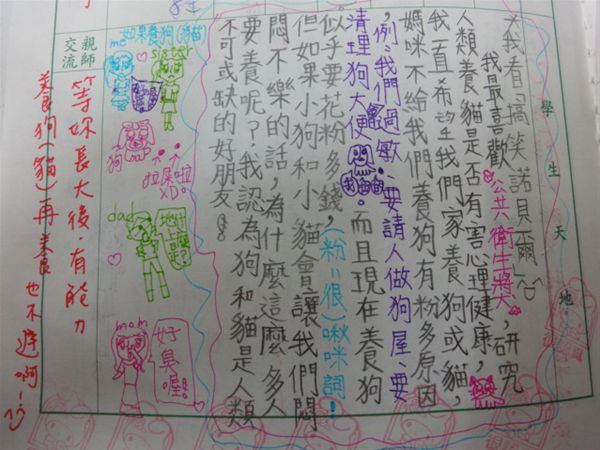 學生天地
大我看「搞笑諾貝爾」公
我最喜歡公共衛生獎,研究
人類養貓是否有害心理健康,
我一直希望我們家養狗或貓,
媽咪不給我們養狗有粉多原因
,例:我們過敏、要請人做狗屋、要
清理狗大便(我畫的)而且現在養狗
似乎要花粉多錢,(粉=很)啾咪詞!
但如果小狗和小貓會讓我們悶
悶不樂的話,為什麼這麼多人
要養呢?我認為狗和貓是人類
不可或缺的好朋友。
親師交流
如果養狗(貓)
me
sister
狗
拉屎啦
XD
dad
地上這是?
mom
好臭喔!
等妳長大後,有能力
養狗(貓)再養
也不遲啊~